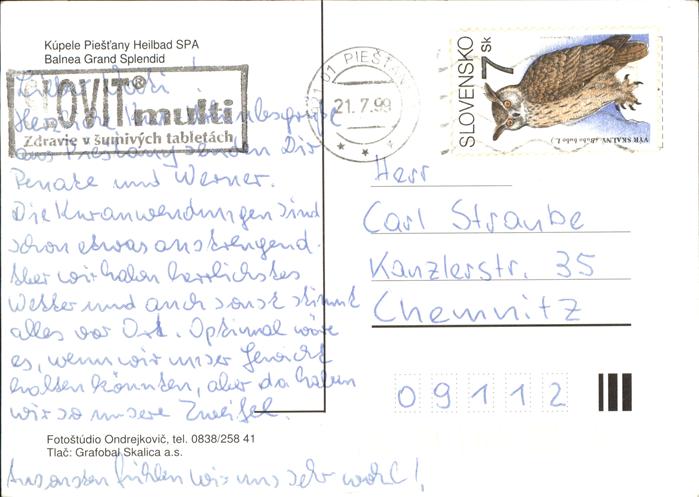 Kúpele Piešťany Heilbad SPA
Balnea Grand Splendid
SLOVIT® multi
Zdravie v šumivých tabletách
Herzliche
aus Piestany senden Dir
Renate und Werner.
Die Kuranwendungen sind
schon etwas anstrengend.
Aber wir haben herrlichstes
Wetter und auch sonst stimmt
alles vor Ort. Optimal wäre
es, wenn wir unser Gewicht
halten könnten, aber da haben
wir so unsere Zweifel.
Ansonsten fühlen wir uns sehr wohl!
Fotoštúdio Ondrejkovič, tel. 0838/258 41
Tlač: Grafobal Skalica a.s.
01 PIEŠŤANY
21.7.99
SLOVENSKO
7 Sk
VÝR SKALNÝ (Bubo bubo L.)
Herr
Carl Straube
Kanzlerstr. 35
Chemnitz
09112